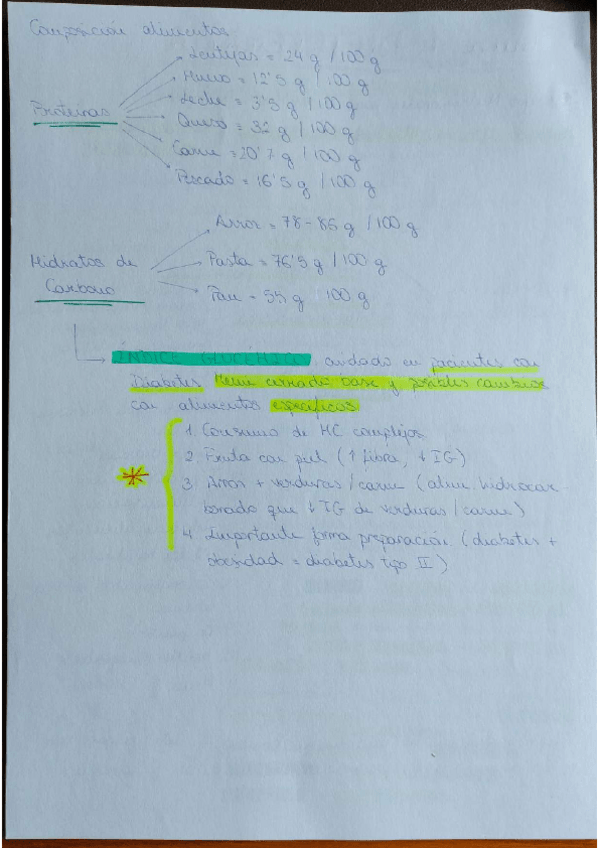 Composición alimentos
Lentejas = 24 g / 100 g
Huevo = 12'5 g / 100 g
Leche = 3'5 g / 100 g
Proteínas
Queso = 32 g / 100 g
Carne = 20'7 g / 100 g
Pescado = 16'5 g / 100 g
Arroz = 78-86 g / 100 g
Hidratos de
Carbono
Pasta = 76'5 g / 100 g
Pan = 55 g / 100 g
ÍNDICE GLUCÉMICO cuidado en pacientes con
Diabetes. Menú cerrado base y posibles cambios
con alimentos específicos
1. Consumo de HC complejos
2. Fruta con piel (↑ fibra, ↓ IG)
3. Arroz + verduras / carne (alim. hidrocar-
bonado que ↓ IG de verduras / carne)
4. Importante forma preparación (diabetes +
obesidad = diabetes tipo II)